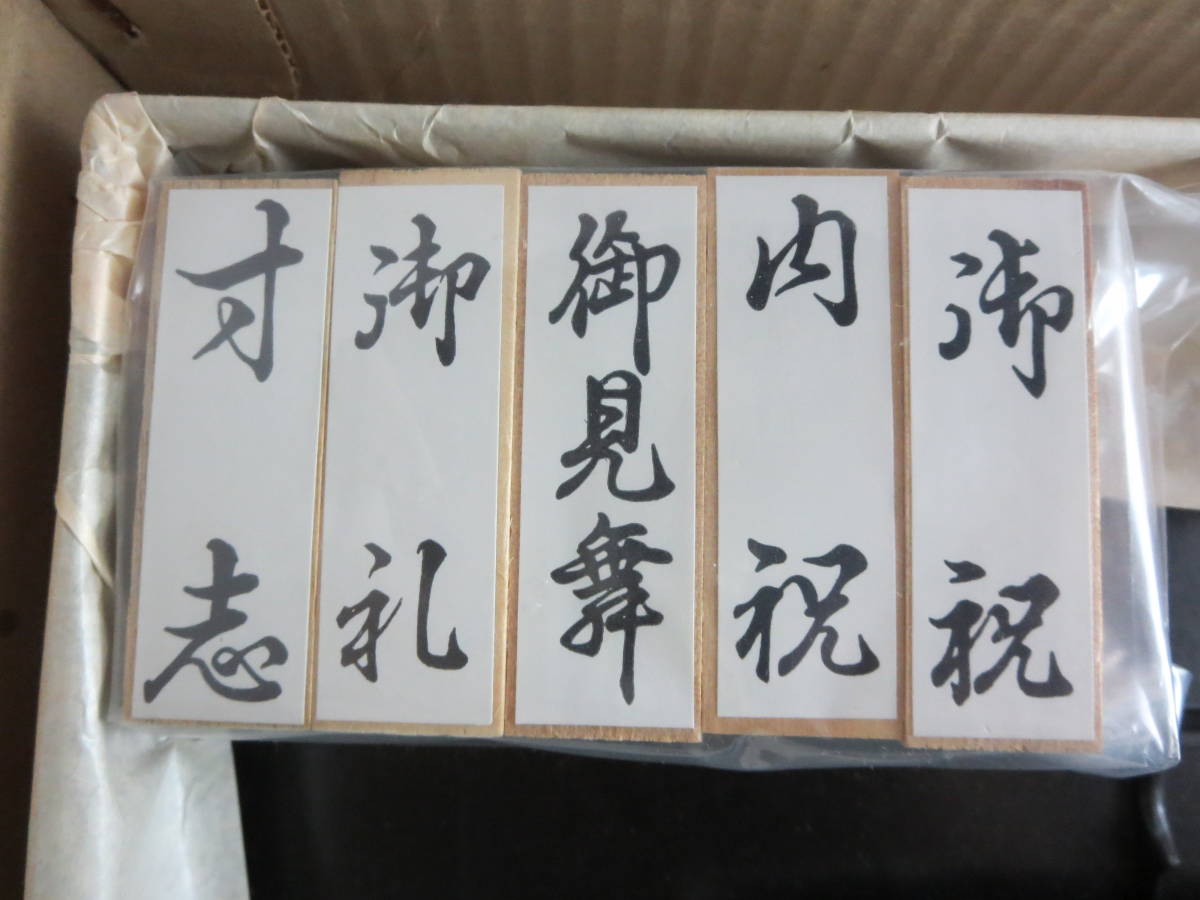 御祝
内祝
御見舞
御礼
寸志